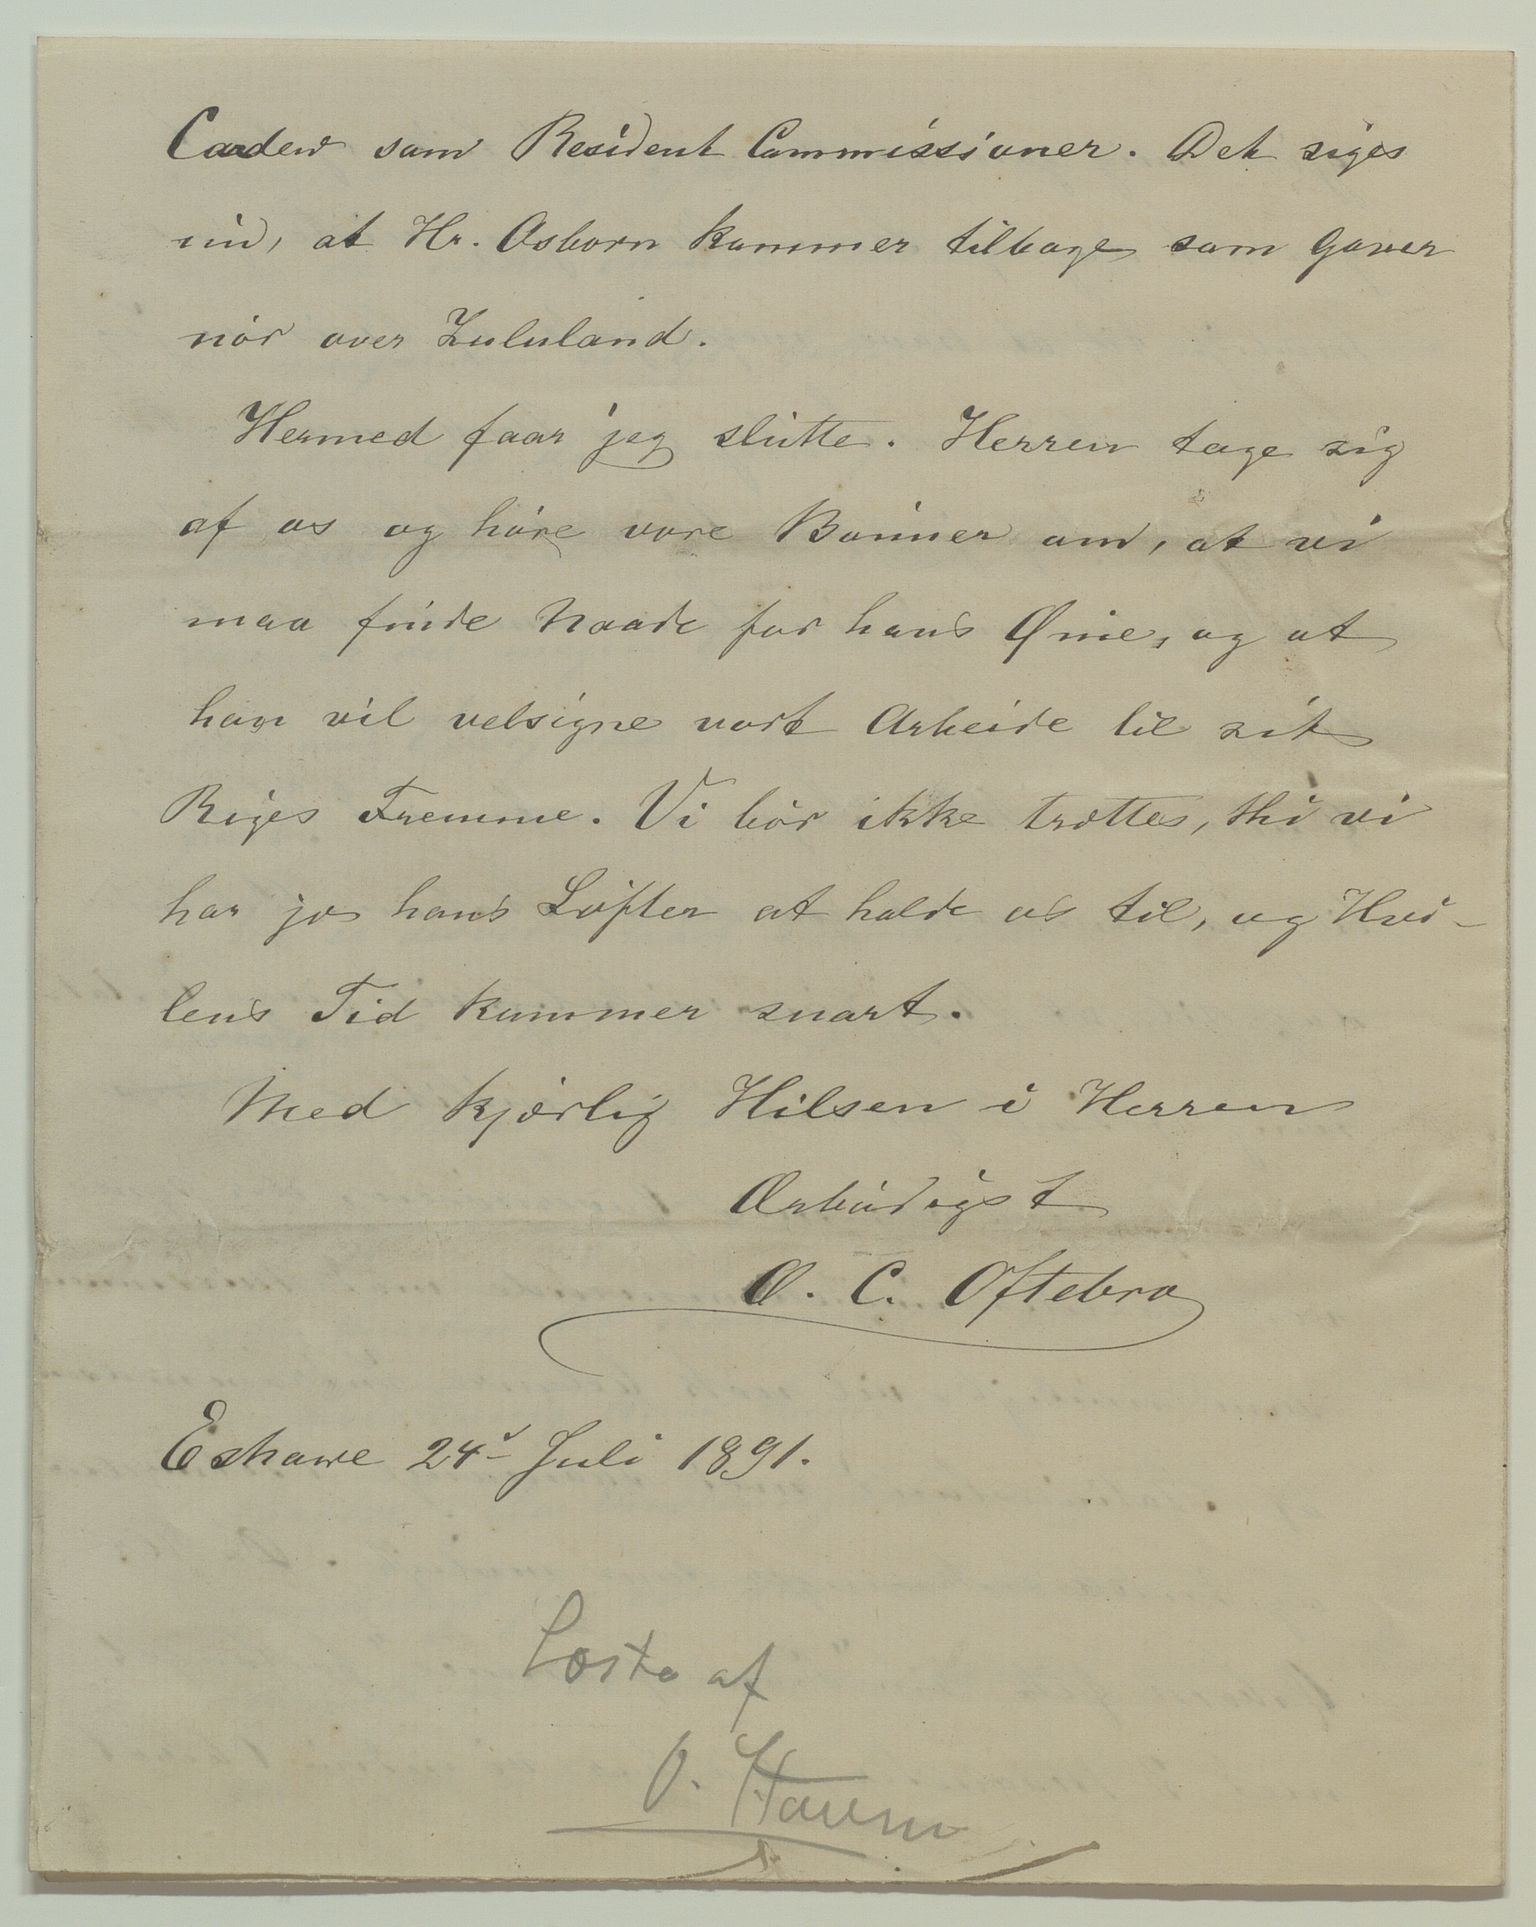 Cardew som Resident Commissioner. Det siges
nu, at Hr. Osborn kommer tilbage som Gover
nör over Zululand.
Hermed faar jeg slutte. Herren tage sig
af os og höre vore Bönner om, at vi
maa finde Naade for hans Øine, og at
han vil velsigne vort Arbeide til sit
Riges Fremme. Vi bör ikke trættes, thi vi
har jo hans Löfter at holde os til, og Hvi-
lens Tid kommer snart.
Med kjærlig Hilsen i Herren
Ærbödigst
O. C. Oftebro
Eshowe 24d Juli 1891.
Læst af
O.